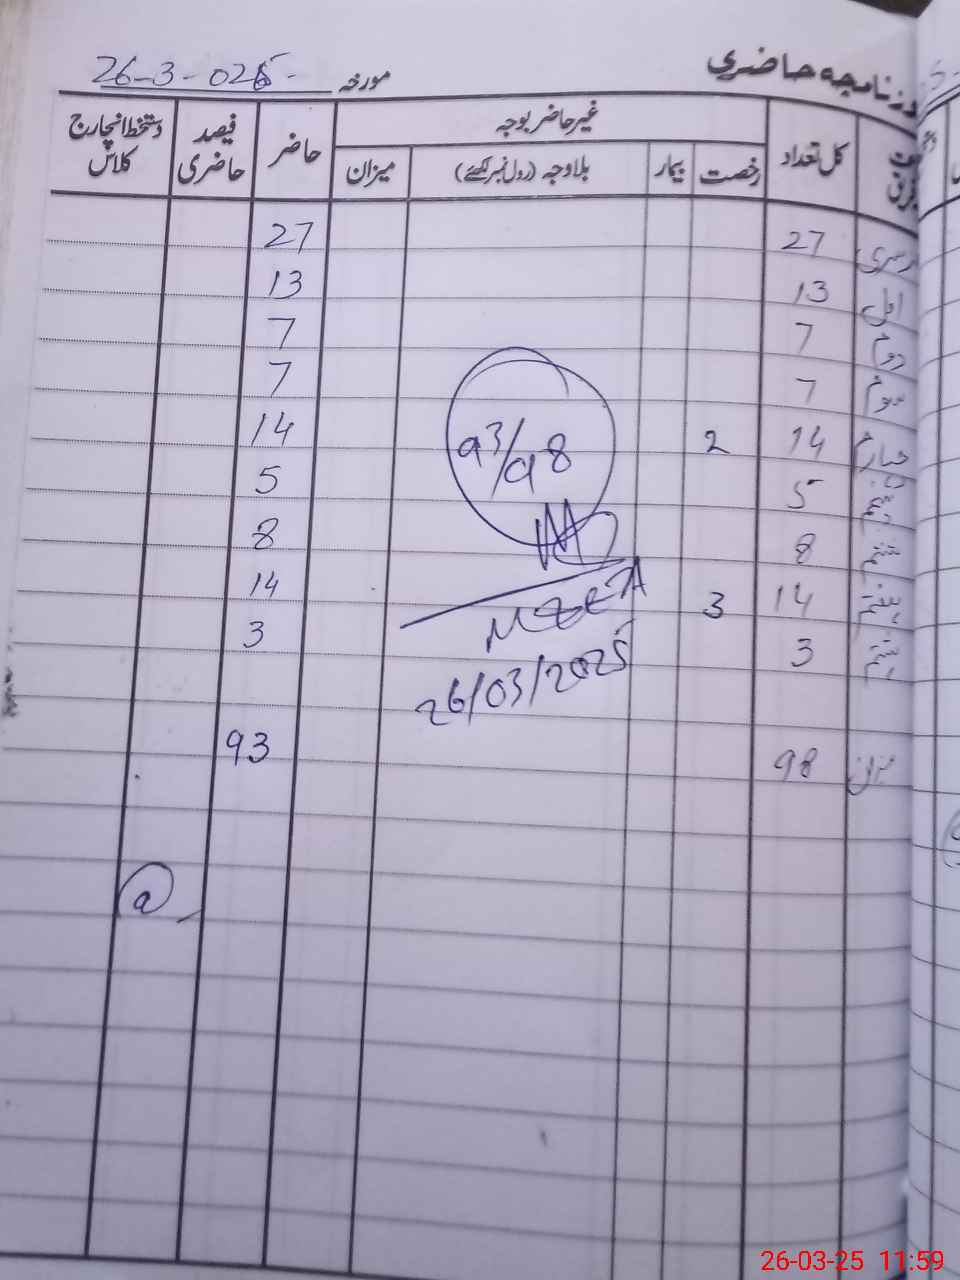 روزنامچہ حاضری
مورخہ 26-3-025
کل تعداد غیر حاضر بوجہ حاضر فیصد حاضری دستخط انچارج کلاس
رخصت بیمار بلاوجہ (رول نمبر لکھئے) میزان
27 27
اول 13 13
دوم 7 7
سوم 7 7
چہارم 14 2 14
5 5
8 8
14 3 14
3 3
میزان 98 93
93/98
26/03/2025
26-03-25 11:59